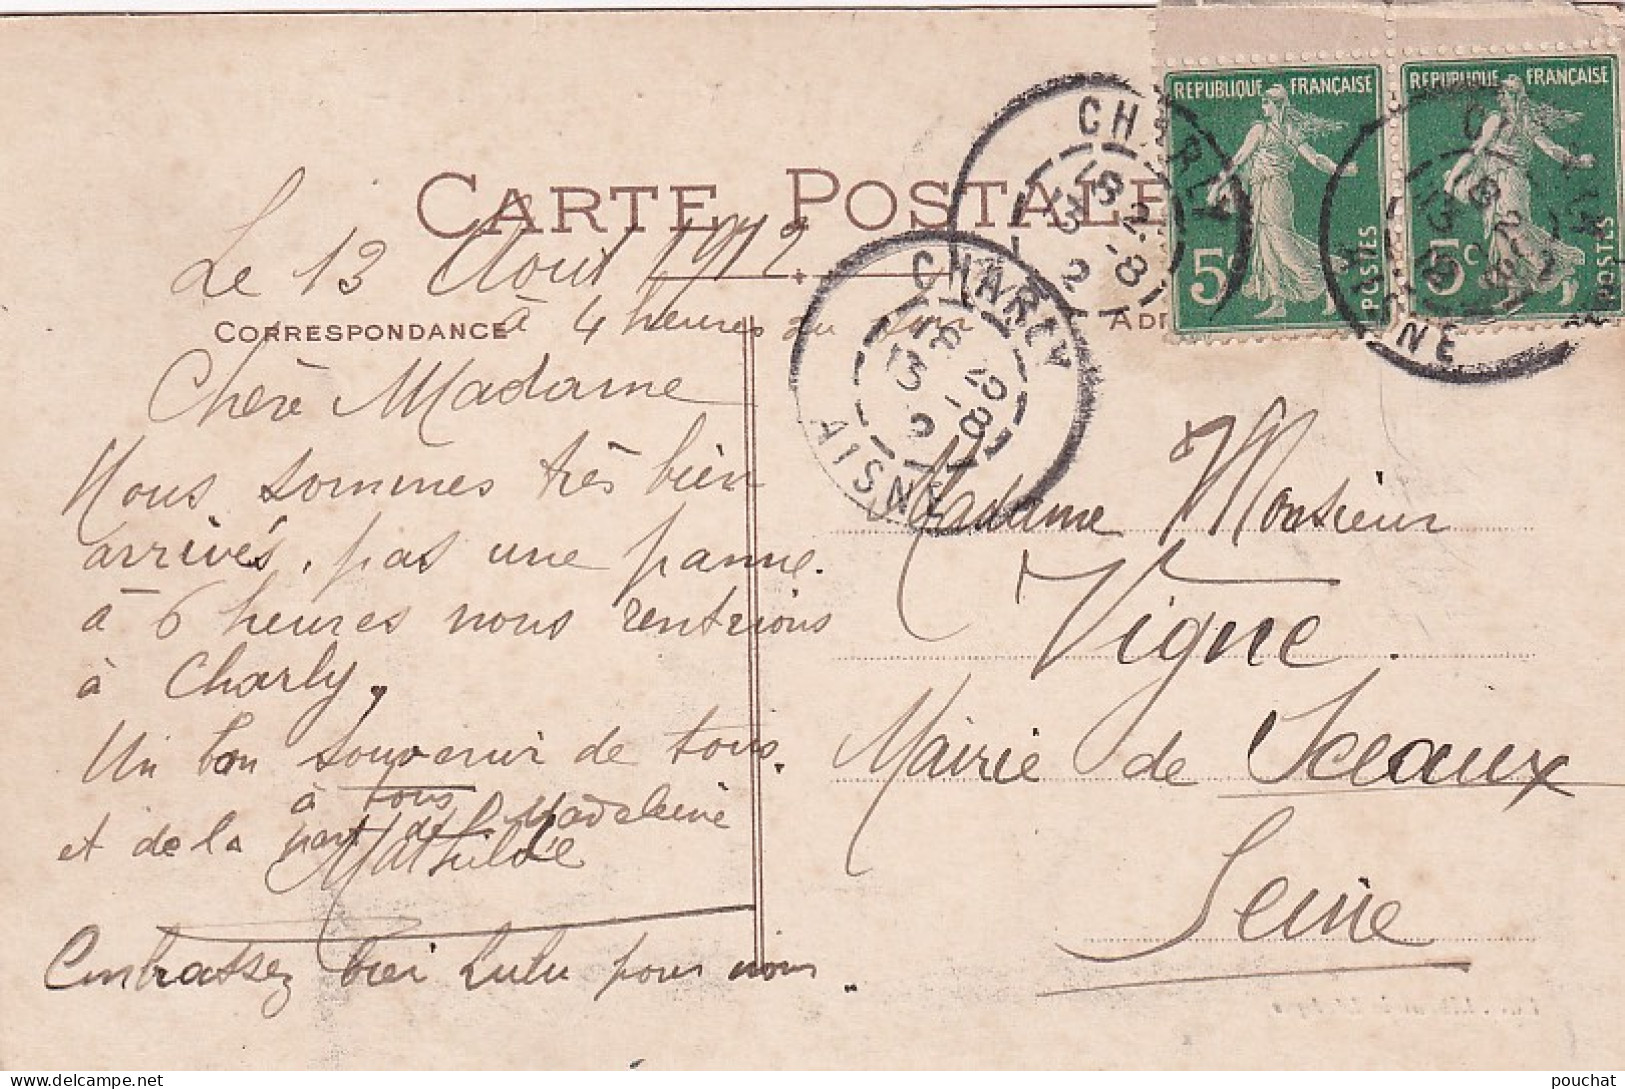 CARTE POSTALE
Le 13 Aout 1912
à 4 heures du soir
CORRESPONDANCE
Chère Madame
Nous sommes très bien
arrivés, pas une panne.
à 6 heures nous rentrions
à Charly,
Un bon souvenir de tous,
à tous
et de la part de Madeleine
Mathilde
Embrassez bien Lulu pour nous.
REPUBLIQUE FRANÇAISE
5c
POSTES
REPUBLIQUE FRANÇAISE
5c
POSTES
CHARLY
18 25
13 -8
12
CHARLY
AISNE
CHARLY
AISNE
Madame Monsieur
Vigne.
Mairie de Sceaux
Seine
pouchat